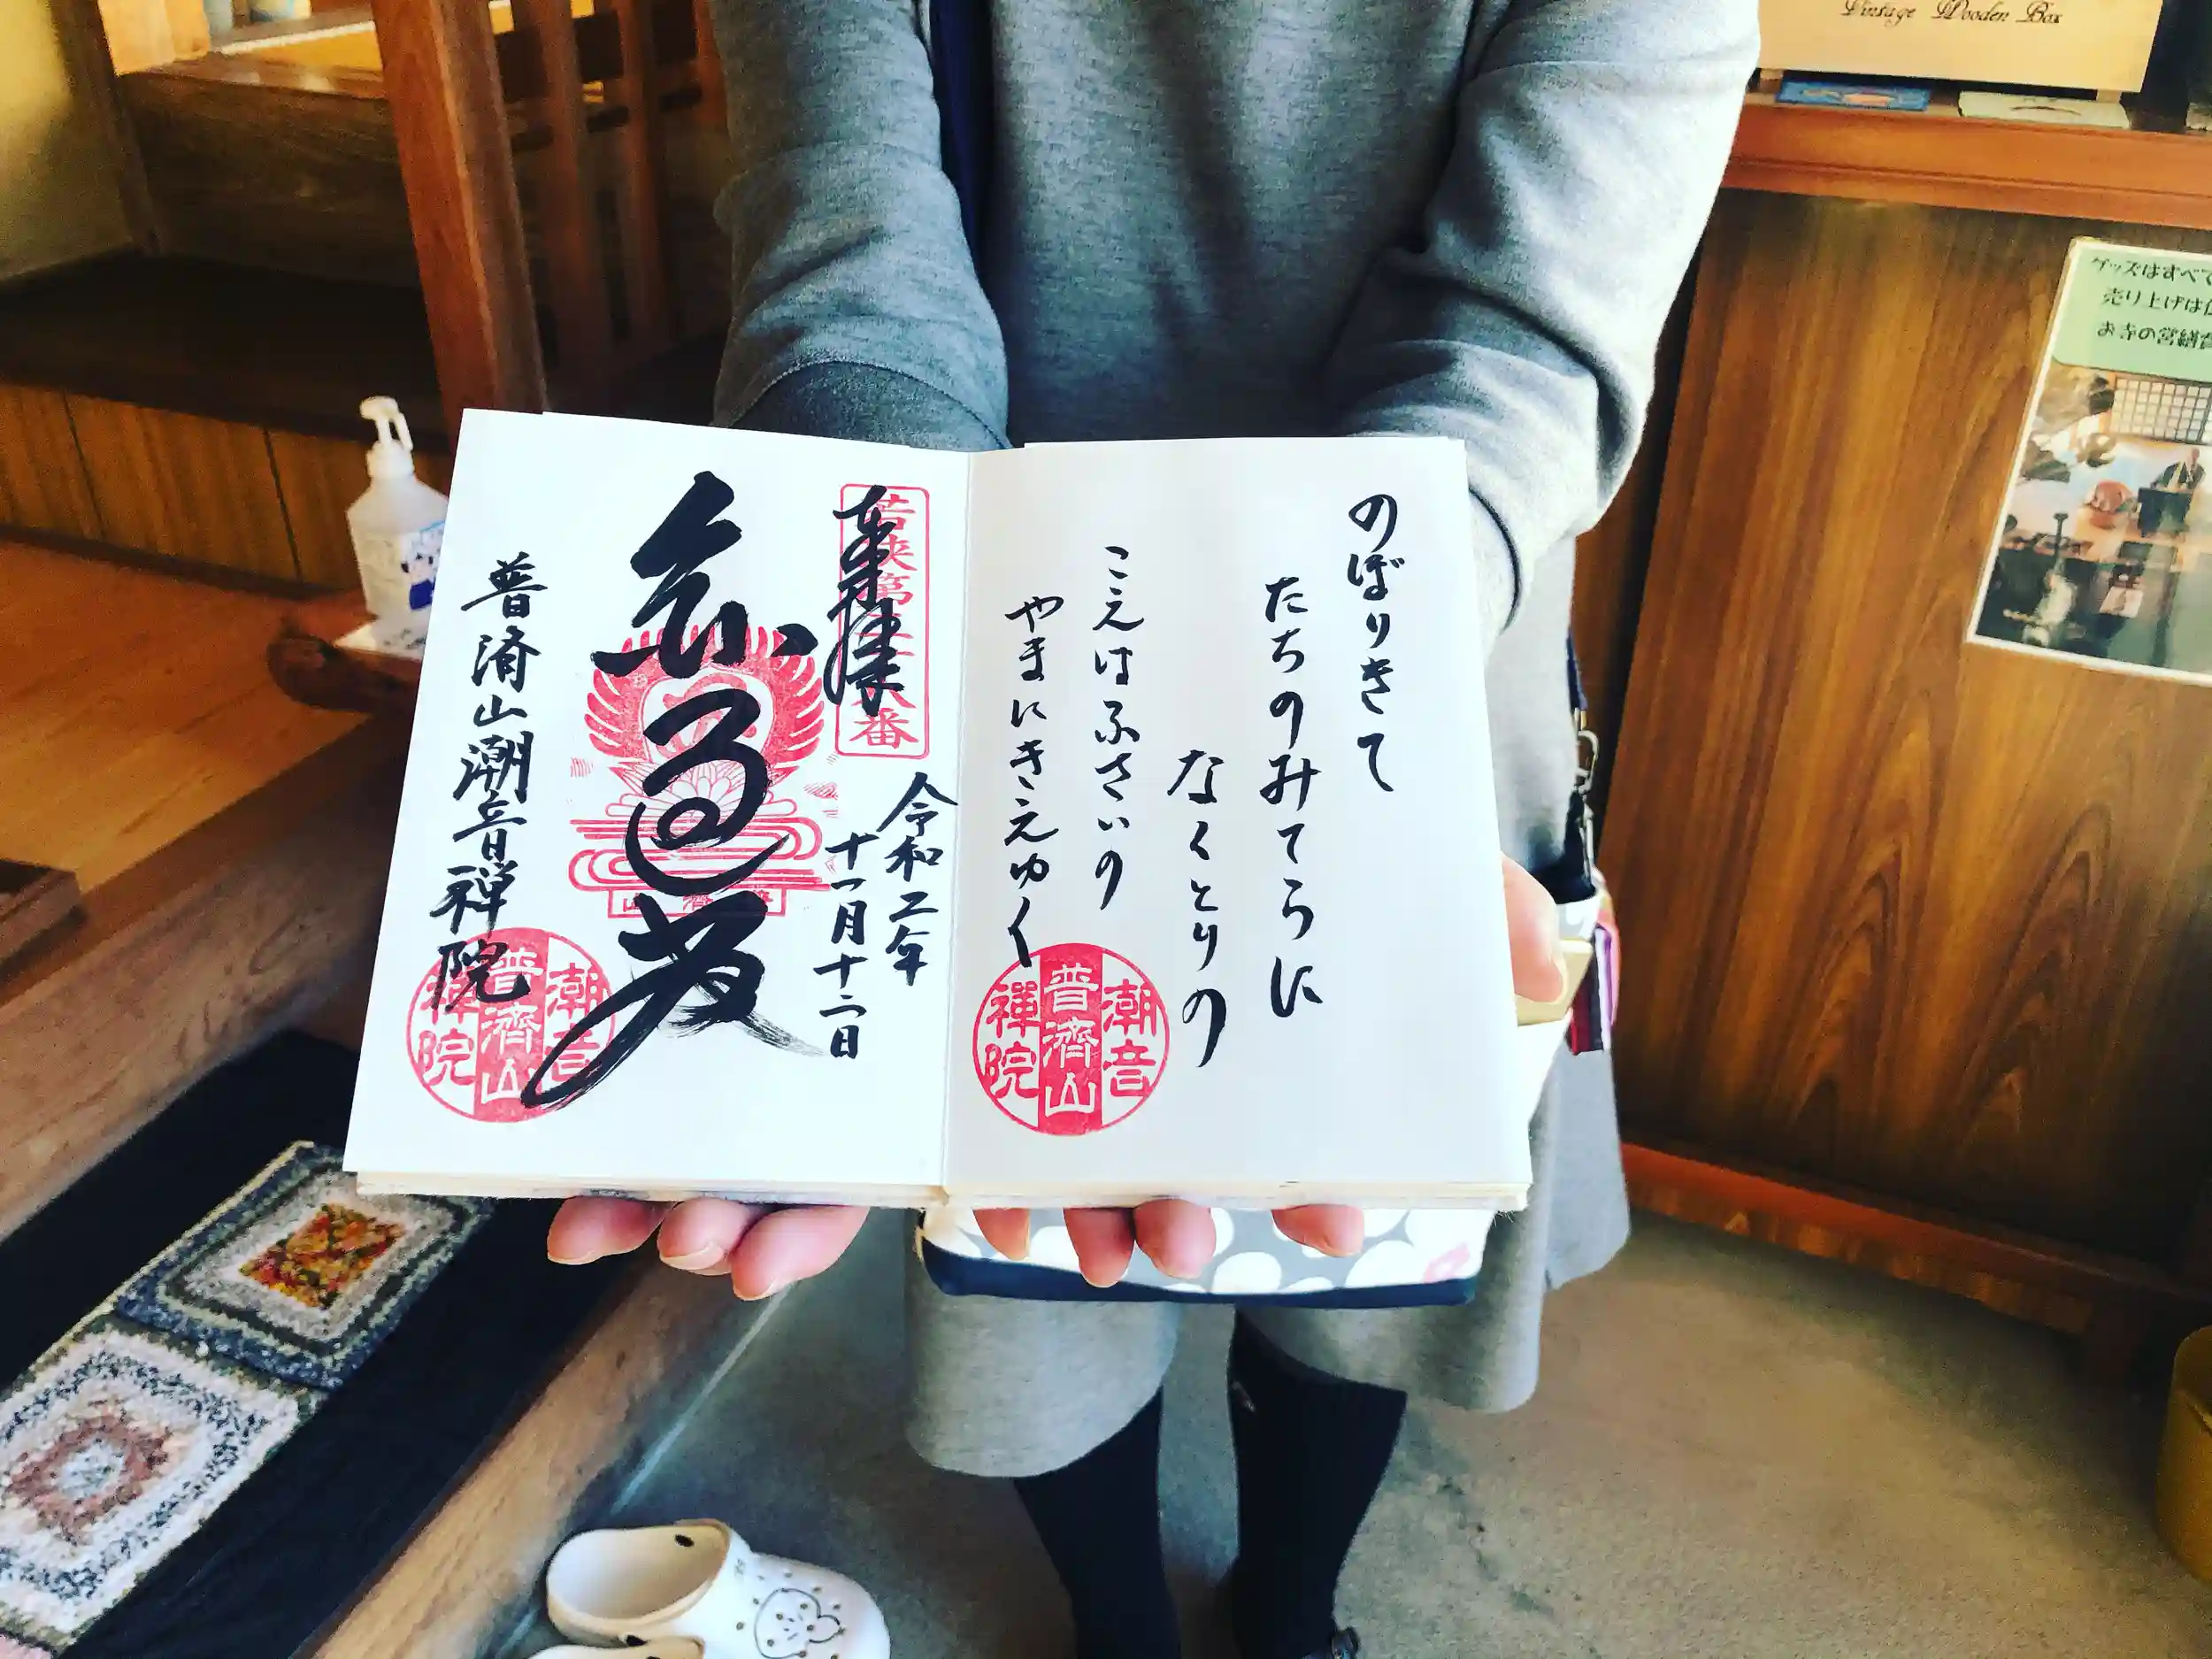 のぼりきて
たちのみてらに
なくとりの
こえはふさいの
やまにきえゆく
潮音
普濟山
禪院
奉拝
令和二年
十一月十二日
普済山潮音禅院
潮音
普濟山
禪院
Vintage Wooden Box
グッズはすべて
売り上げは
お寺の営繕